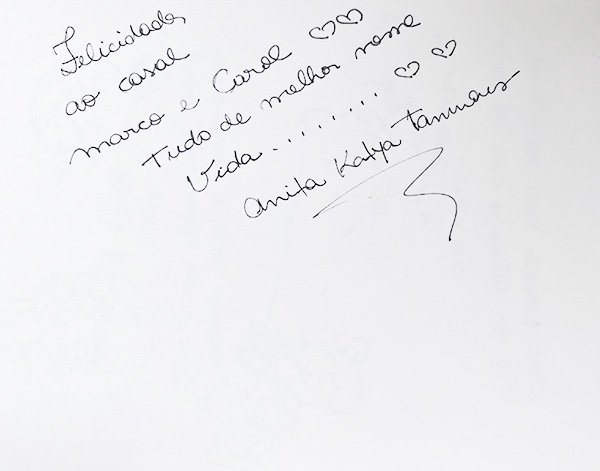 Felicidades
ao casal
marco e Carol ♡♡
Tudo de melhor nessa
Vida......... ♡♡
Anita Katya Tannous